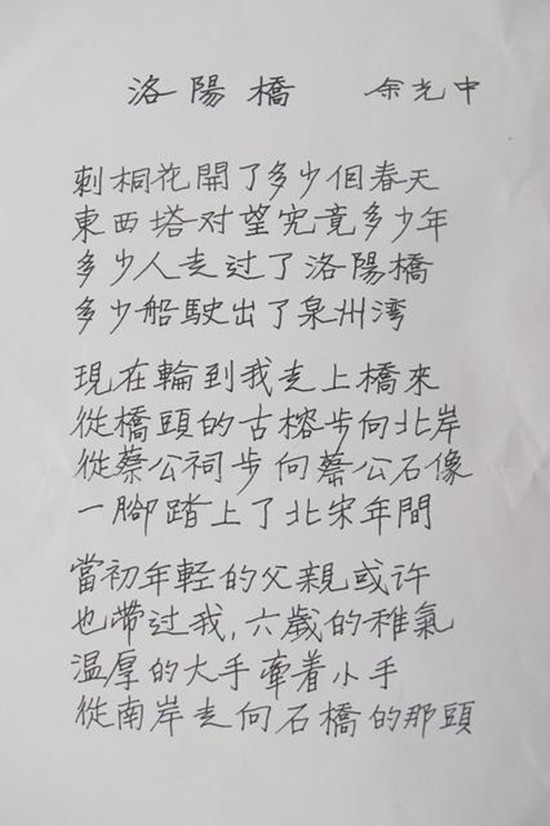 洛陽橋 余光中
刺桐花開了多少個春天
東西塔对望究竟多少年
多少人走过了洛陽橋
多少船駛出了泉州湾
現在輪到我走上橋來
從橋頭的古榕步向北岸
從蔡公祠步向蔡公石像
一腳踏上了北宋年間
當初年輕的父親或许
也帶过我,六歲的稚氣
温厚的大手牽着小手
從南岸走向石橋的那頭